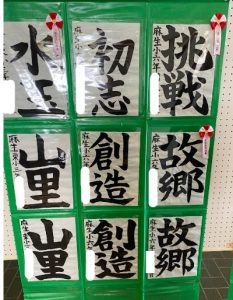 挑戦
麻生小六年
初志
麻生小六年
水玉
故郷
麻生小六年
創造
麻生小六年
山里
麻生東小三年
故郷
麻生小六年
創造
麻生小六年
山里